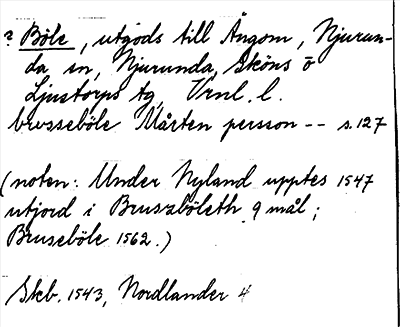 ? Böle, utgods till Ångom, Njurun-
da sn, Njurunda, Sköns o
Ljustorps tg, Vrnl. l.
brosseböle Mårten persson -- s. 127
(noten: Under Nyland upptes 1547
utjord i Bruszböleth 9 mål;
Bruseböle 1562.)
Skb. 1543, Nordlander 4